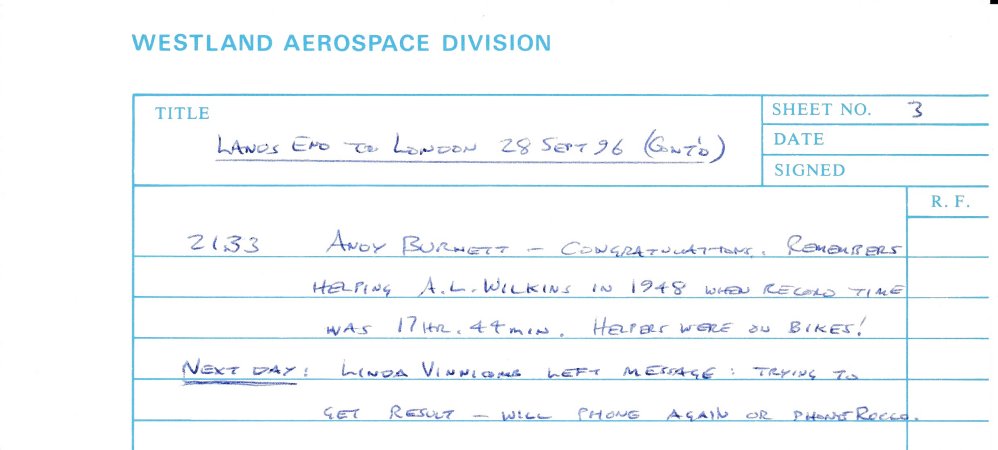 WESTLAND AEROSPACE DIVISION
TITLE
LANDS END TO LONDON 28 SEPT 96 (CONT'D)
SHEET NO. 3
DATE
SIGNED
R. F.
2133 ANDY BURNETT – CONGRATULATIONS. REMEMBERS
HELPING A.L. WILKINS IN 1948 WHEN RECORD TIME
WAS 17 HR. 44 MIN. HELPERS WERE ON BIKES!
NEXT DAY: LINDA LEFT MESSAGE: TRYING TO
GET RESULT – WILL PHONE AGAIN OR PHONE ROCCO.